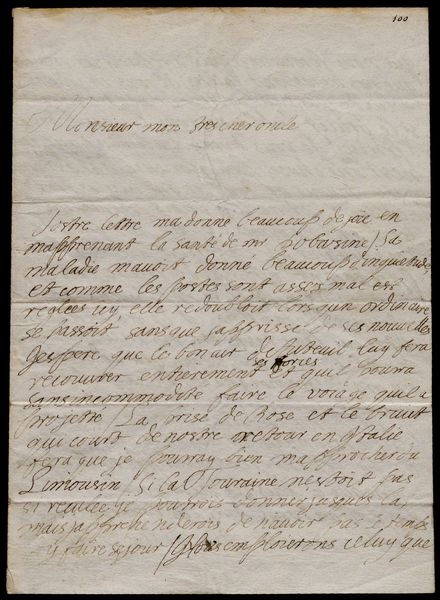 100
Monsieur mon tres cher oncle
Vostre lettre ma donné beaucoup de joie en
mapprenant la santé de mr
maladie mavoit donné beaucoup dinquietude
et comme les postes sont asses mal
reglées icy, elle redoubloit lors qun ordinaire
se passoit sans que japprisse de ses nouvelles
Jespere que le bon air dAuteuil luy fera
recouvrer entierement ses forces et quil pourra
sans incommodité faire le voiage quil a
projetté La prise de Rose et le bruit
qui court de nostre retour en Italie
fera que je pourray bien mapprocher du
Limousin Si la Touraine nestoit pas
si reculée je pousrois donner jusques la
mais japprehenderois de navoir pas le temps
dy faire sejour emploierons celuy que